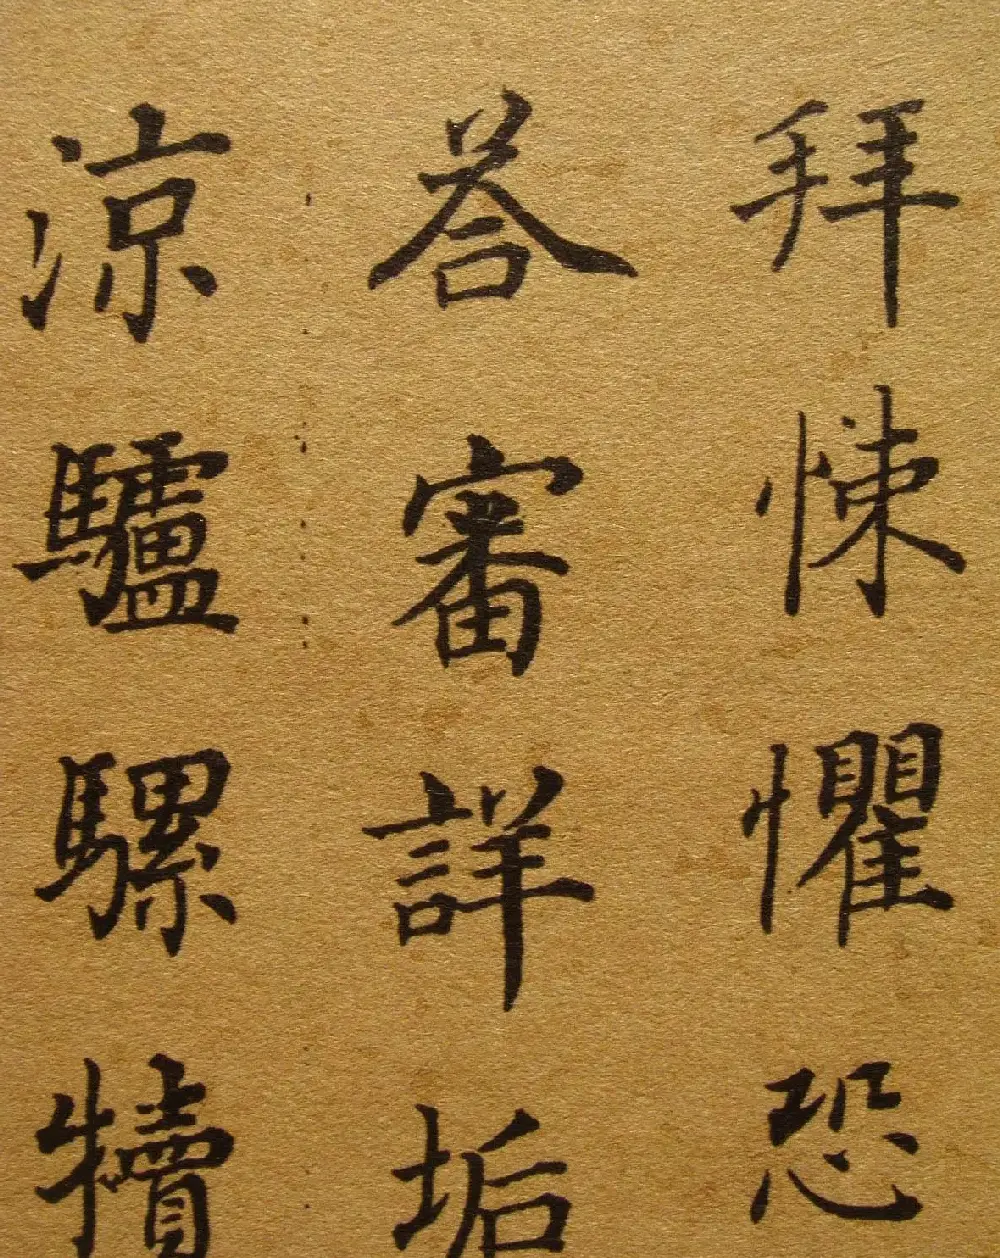 拜悚懼恐
荅審詳垢
涼驢騾犢